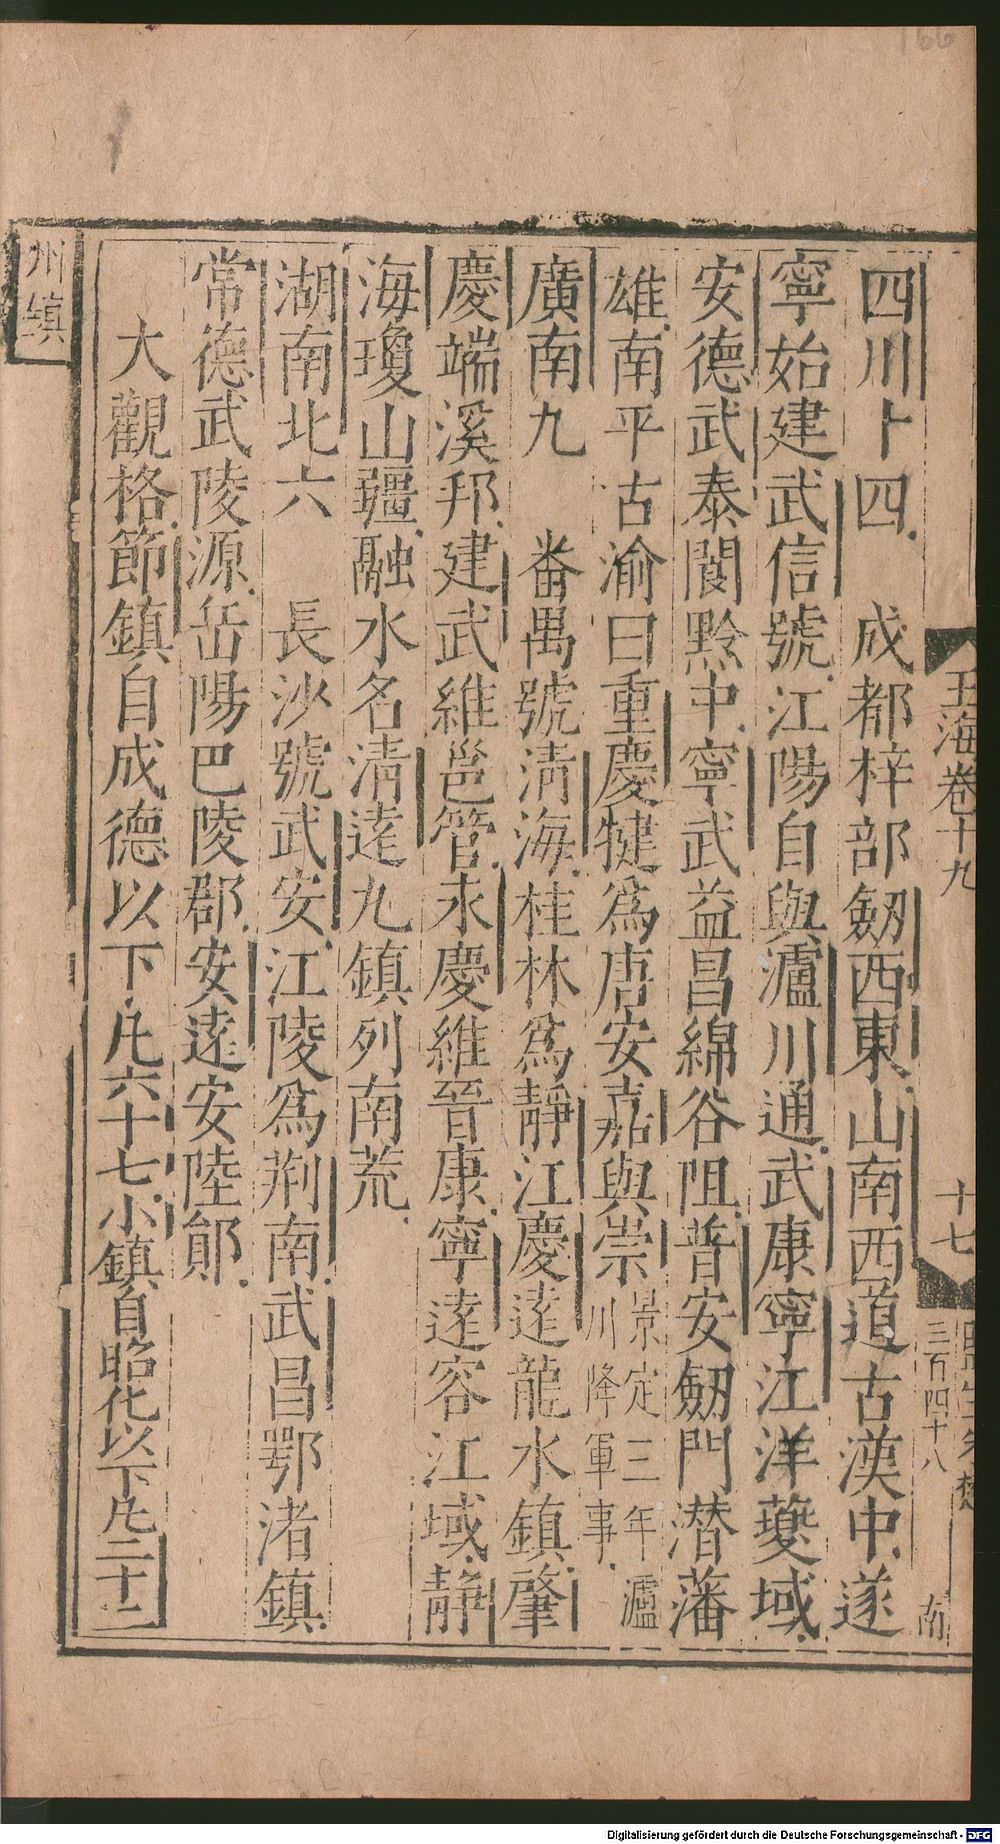 玉海卷十九 十七
三百四十八
四川十四 成都梓部劒西東山南西道古漢中遂
寧始建武信號江陽自與瀘川通武康寧江洋䕫域
安德武泰閬黔中寧武益昌綿谷阻普安劒門潜藩
雄南平古渝曰重慶犍爲唐安嘉與崇景定三年瀘川降軍事
廣南九 番禺號清海桂林爲靜江慶逹龍水鎮肇
慶端溪邦建武維邕管永慶維晉康寧逹容江域靜
海瓊山疆融水名清逺九鎮列南荒
湖南北六 長沙號武安江陵爲荆南武昌鄂渚鎮
常德武陵源岳陽巴陵郡安逺安陸鄖
大觀格節鎮自成德以下凡六十七小鎮自昭化以下凡二十二
州鎮
166
Digitalisierung gefördert durch die Deutsche Forschungsgemeinschaft - DFG